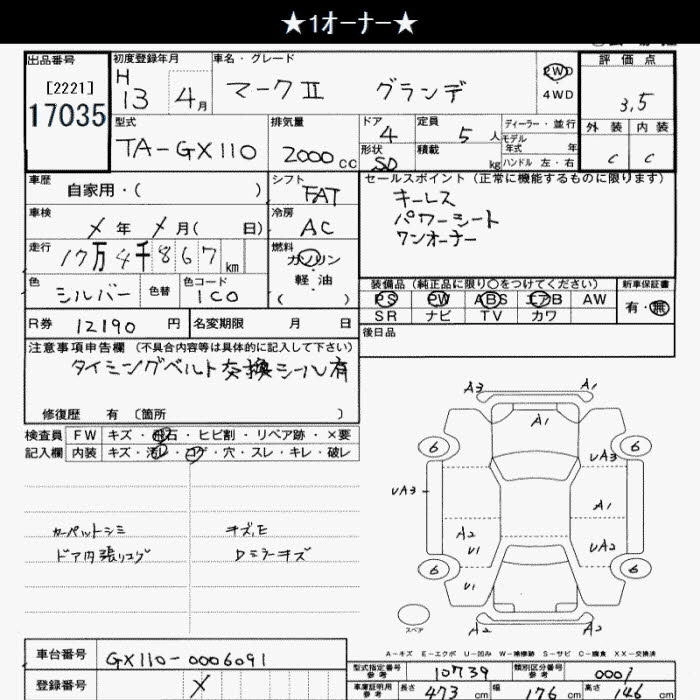 ★1ｵｰﾅｰ★
出品番号
[2221]
17035
初度登録年月
H
13 4月
車名・グレード
マークⅡ グランデ
2WD
4WD
評価点
3,5
外装 内装
C C
型式
TA-GX110
排気量
2000cc
ドア
4
定員
5人
形状
SD
積載
kg
ディーラー・並行
モデル
年式 年
ハンドル 左・右
車歴
自家用・( )
シフト
FAT
セールスポイント (正常に機能するものに限ります)
キーレス
パワーシート
ワンオーナー
車検
メ年 メ月( 日)
冷房
AC
走行
17万4千867km
燃料
ガソリン
軽・油
( )
色
シルバー
色替
色コード
1C0
装備品(純正品に限り○をつけてください)
PS PW ABS エアB AW
SR ナビ TV カワ
新車保証書
有・無
R券 12190円
名変期限 月 日
後日品
注意事項申告欄 (不具合内容等は具体的に記入して下さい)
タイミングベルト交換シール有
修復歴 有 〔箇所 〕
検査員
記入欄
FW キズ・飛石・ヒビ割・リペア跡・×要
内装 キズ・汚レ・コゲ・穴・スレ・キレ・破レ
カーペットシミ
ドア内張りコゲ
キズ,E
Dミラーキズ
A3 A1
A1
6 6
UA3
UA3
A1
A2
U1
UA2
6 6
U1
スペア
A2 A2
A-キズ E-エクボ U-凹み W-補修跡 S-サビ C-腐食 XX-交換済
車台番号
GX110-0006091
登録番号
メ
型式指定番号
参考
10739
類別区分番号
参考
0001
車庫証明用
参考
長さ 473cm 幅 176cm 高さ 146cm